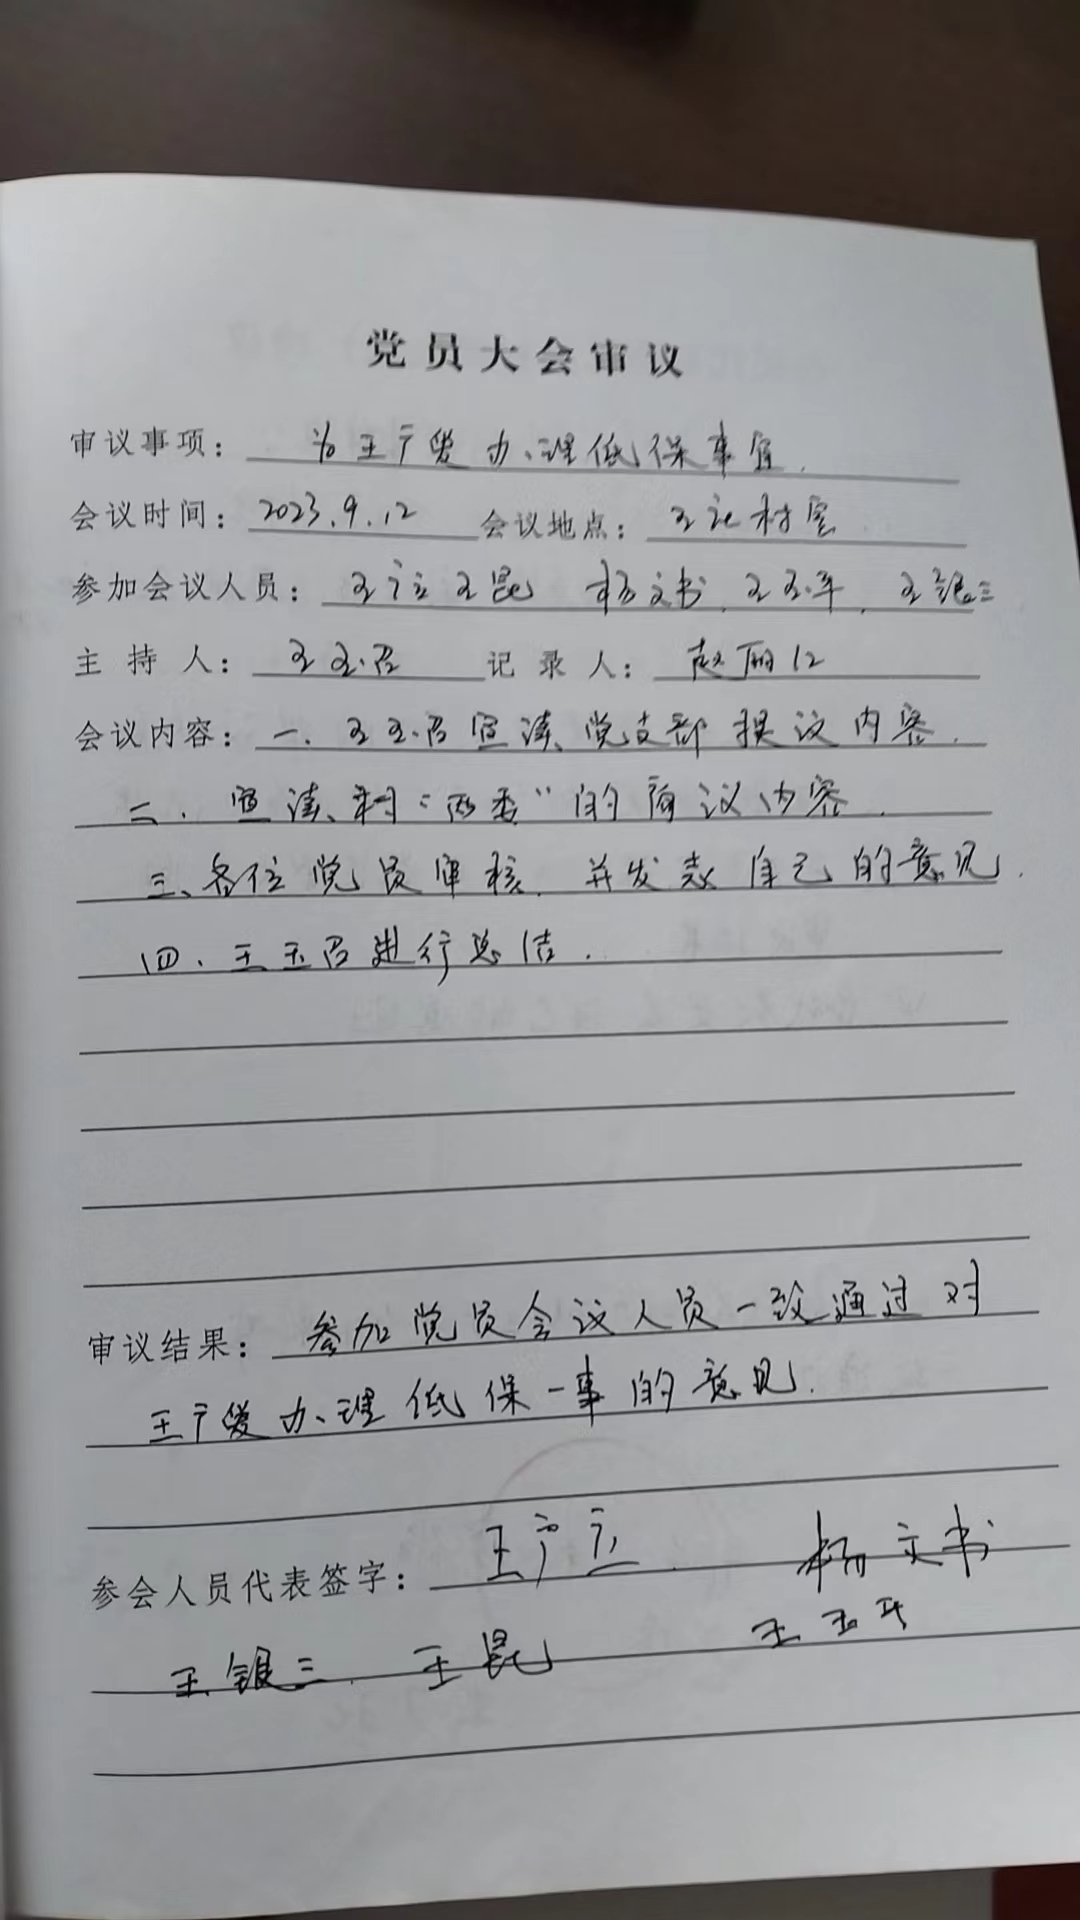 党员大会审议
审议事项：为王广爱办理低保事宜.
会议时间：2023.9.12 会议地点：王 村室
参加会议人员：王广立 王昆 杨文书. 王玉平. 王银三
主持人：王玉召 记录人：赵丽
会议内容：一、王玉召宣读党支部提议内容.
二、宣读村“两委”的商议内容.
三、各位党员审核. 并发表自己的意见.
四、王玉召进行总结.
审议结果：参加党员会议人员一致通过对
王广爱办理低保一事的意见.
参会人员代表签字：王广立 杨文书
王银三. 王昆 王玉平